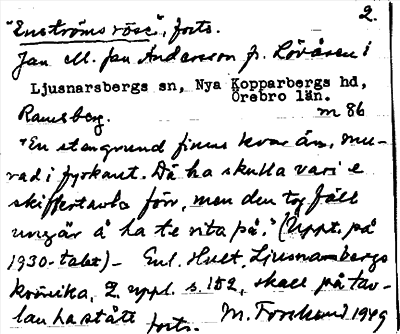 2.
"Enströms röse", forts.
Jan ell. Jan Andersson fr. Lövåsen i
Ljusnarsbergs sn, Nya Kopparbergs hd,
Örebro län.
Ramsberg. m 86
"En stengrund finns kvar än, mu-
rad i fyrkant. Då ha skulla vari e
skiffertavla förr, men den tog fäll
ungar å ha te rita på." (Uppt. på
1930-talet) – Enl. Hult, Ljusnarsbergs
krönika, 2 uppl. s. 152, skall på tav-
lan ha stått forts. M. Forslund 1949